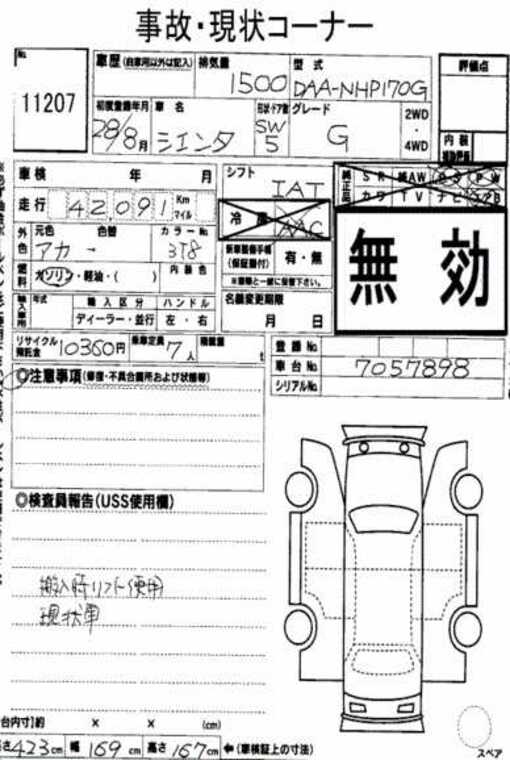 事故・現状コーナー
No.
11207
車歴(自家用以外は記入) 排気量 1500 型式 DAA-NHP170G
評価点
初度登録年月 28/8月 車名 シエンタ 形状・ドア数 SW 5 グレード G 2WD・4WD
内装
車検 年 月 シフト IAT
純正品 SR 純AW PS PW
カワ TV ナビ エアB
走行 42,091 Km マイル 冷房 AAC
無効
外色 元色 アカ 色替 ー カラーNo. 3T8
新車整備手帳(保証書付) 有・無
燃料 ガソリン・軽油・( ) 内装色
※書類と一緒に保管下さい。
輸入車用 年式 輸入区分 ハンドル 名義変更期限
ディーラー・並行 左・右 月 日
リサイクル預託金 10350円 乗車定員 7人 積載量 t
登録No.
車台No. 7057898
シリアルNo.
◎注意事項(修復・不具合箇所および状態等)
◎検査員報告(USS使用欄)
搬入時リフト使用
現状車
台内寸]約 × × (cm)
長さ423cm 幅169cm 高さ167cm ←(車検証上の寸法)
スペア